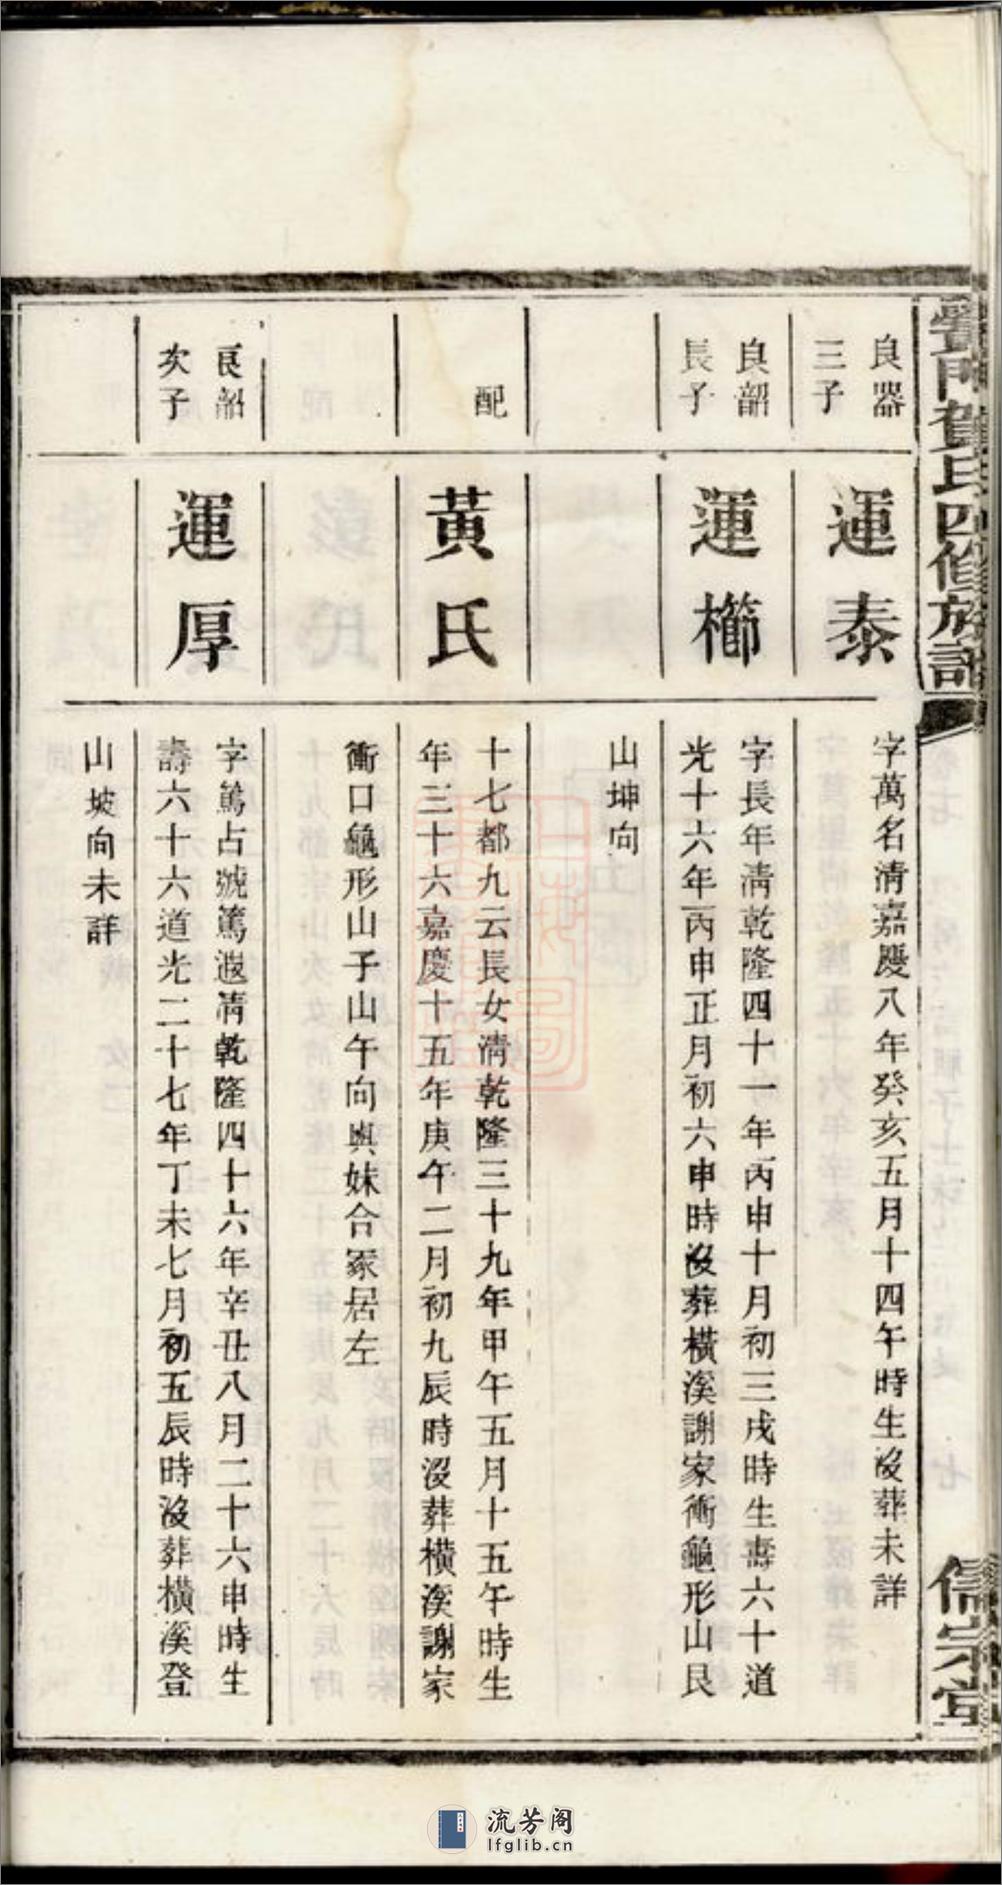 良器
三子
運泰
字萬名清嘉慶八年癸亥五月十四午時生沒葬未詳
良韶
長子
運櫛
字長年清乾隆四十一年丙申十月初三戌時生壽六十道
光十六年丙申正月初六申時沒葬橫溪謝家衝龜形山艮
山坤向
配
黃氏
十七都九云長女清乾隆三十九年甲午五月十五午時生
年三十六嘉慶十五年庚午二月初九辰時沒葬橫溪謝家
衝口龜形山子山午向與妹合冢居左
良韶
次子
運厚
字篤占號篤遐清乾隆四十六年辛丑八月二十六申時生
壽六十六道光二十七年丁未七月初五辰時沒葬橫溪登
山坡向未詳
氏四修族譜
儒宗堂
流芳阁
lfglib.cn